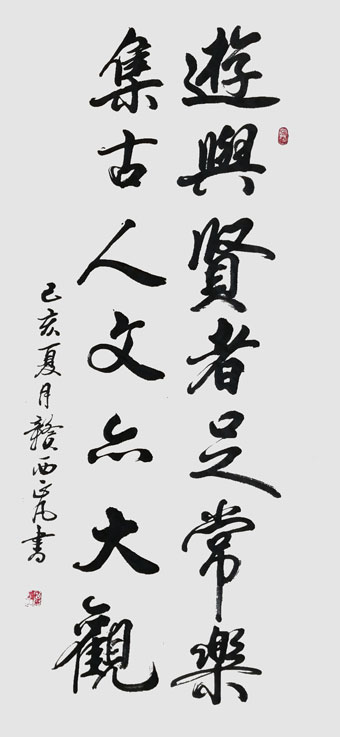 遊與賢者足常樂
集古人文亦大觀
己亥夏月贛西書